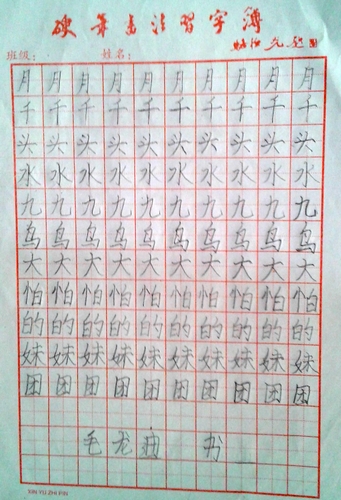 硬筆書法習字簿
班级: 姓名:
月月月月月月月月月月
千千千千千千千千千千
头头头头头头头头头头
水水水水水水水水水水
九九九九九九九九九九
鸟鸟鸟鸟鸟鸟鸟鸟鸟鸟
大大大大大大大大大大
怕怕怕怕怕怕怕怕怕怕
的的的的的的的的的的
妹妹妹妹妹妹妹妹妹妹
团团团团团团团团团团
毛龙 书
XIN YU ZHI PIN